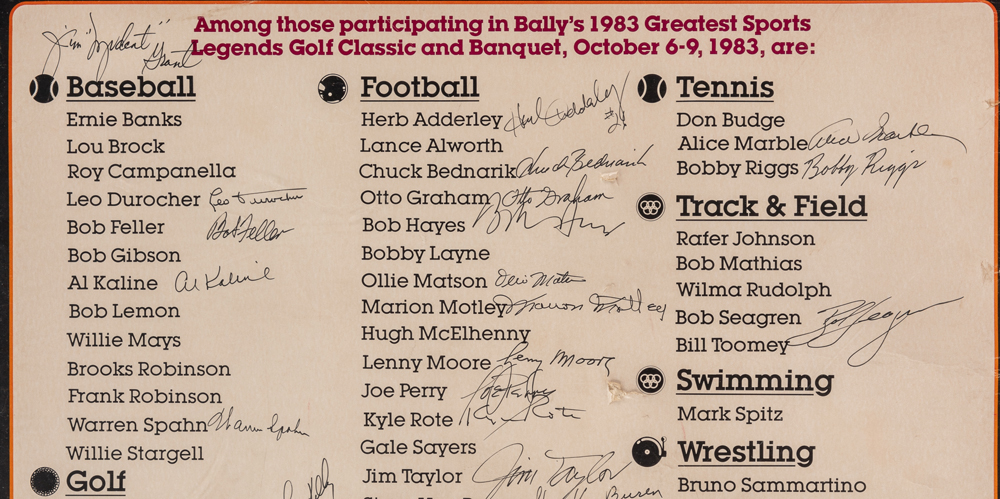 Among those participating in Bally's 1983 Greatest Sports
Legends Golf Classic and Banquet, October 6-9, 1983, are:
Jim "Mudcat"
Grant
Baseball
Ernie Banks
Lou Brock
Roy Campanella
Leo Durocher Leo Durocher
Bob Feller Bob Feller
Bob Gibson
Al Kaline Al Kaline
Bob Lemon
Willie Mays
Brooks Robinson
Frank Robinson
Warren Spahn Warren Spahn
Willie Stargell
Golf
Football
Herb Adderley Herb Adderley
Lance Alworth
Chuck Bednarik Chuck Bednarik
Otto Graham Otto Graham
Bob Hayes
Bobby Layne
Ollie Matson Ollie Matson
Marion Motley Marion Motley
Hugh McElhenny
Lenny Moore Lenny Moore
Joe Perry Joe Perry
Kyle Rote Kyle Rote
Gale Sayers
Jim Taylor Jim Taylor
Tennis
Don Budge
Alice Marble Alice Marble
Bobby Riggs Bobby Riggs
Track & Field
Rafer Johnson
Bob Mathias
Wilma Rudolph
Bob Seagren Bob Seagren
Bill Toomey
Swimming
Mark Spitz
Wrestling
Bruno Sammartino